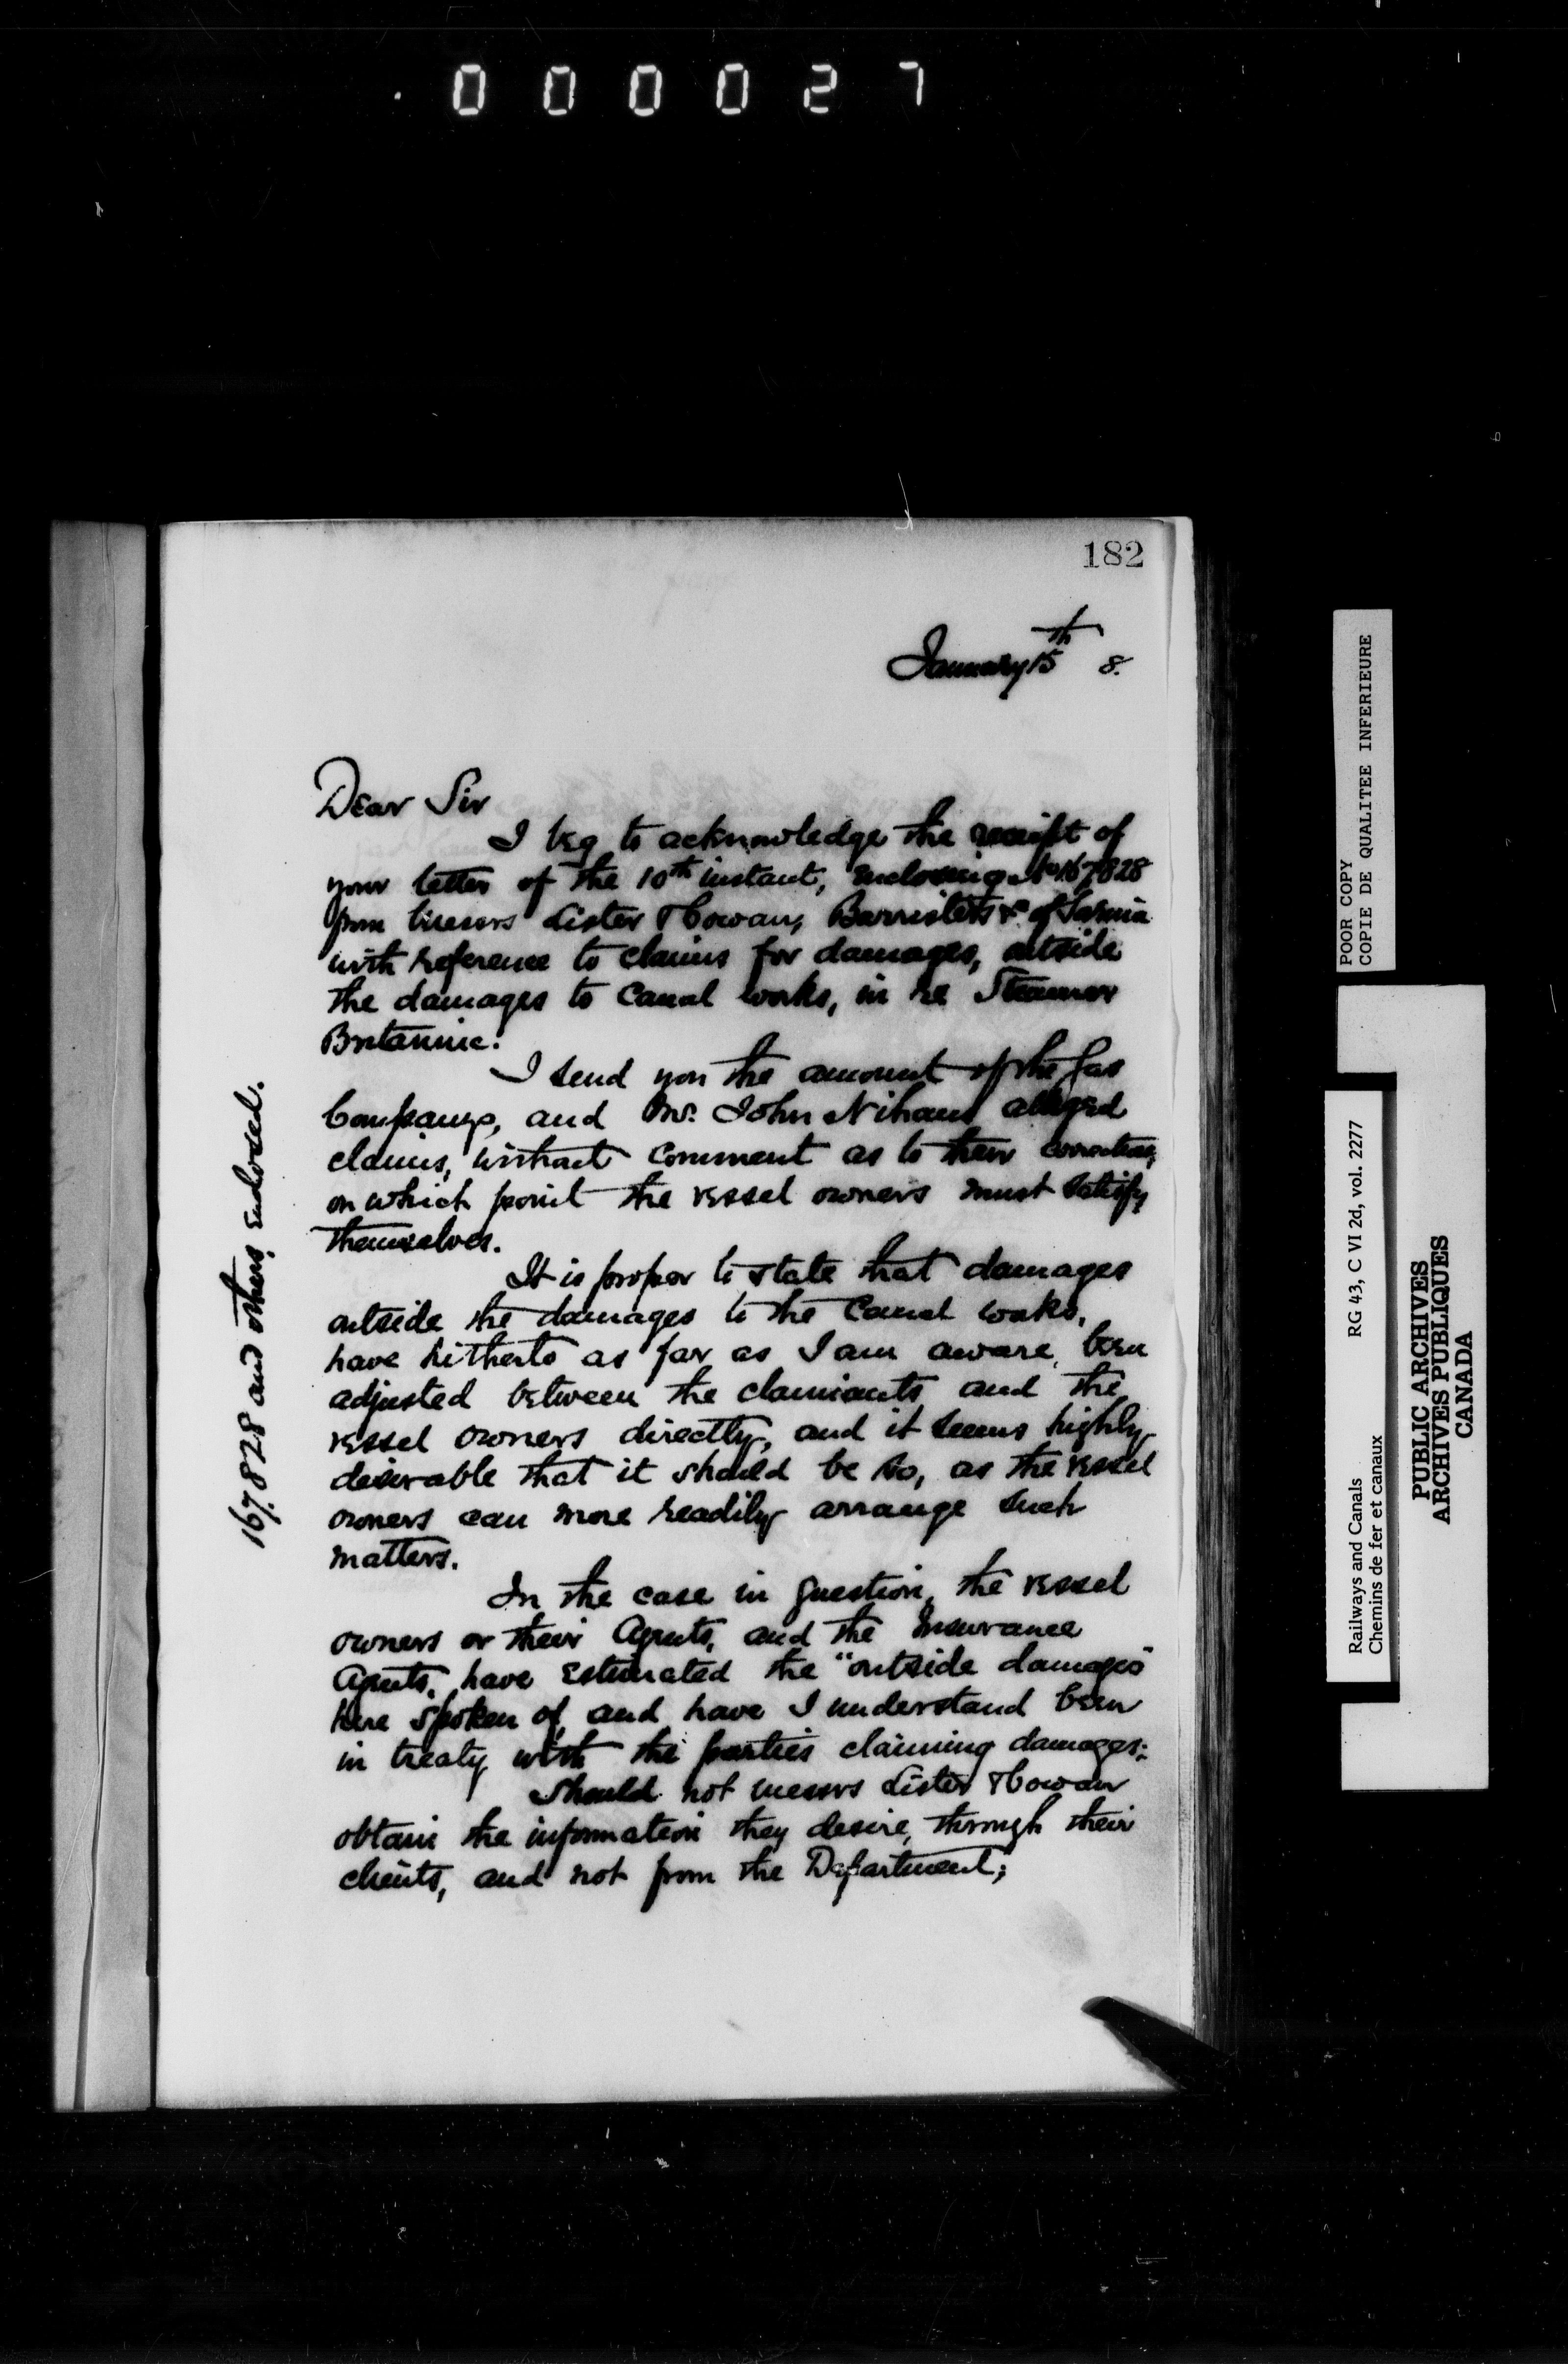 000027
182
January 15th 8.
Dear Sir
I beg to acknowledge the receipt of
your letter of the 10th instant, enclosing No 167828
from Messrs Lister & Cowan, Barristers &c of Sarnia
with reference to claims for damages, outside
the damages to Canal works, in re Steamer
Britannic.
I send you the amount of the Gas
Company, and Mr. John Nihan's alleged
claims, without comment as to their correctness,
on which point the vessel owners must satisfy
themselves.
It is proper to state that damages
outside the damages to the Canal works,
have hitherto as far as I am aware, been
adjusted between the claimants and the
vessel owners directly, and it seems highly
desirable that it should be so, as the vessel
owners can more readily arrange such
matters.
In the case in question, the vessel
owners or their Agents, and the Insurance
Agents, have estimated the "outside damages"
here spoken of, and have I understand been
in treaty with the parties claiming damages;
Should not Messrs Lister & Cowan
obtain the information they desire, through their
clients, and not from the Department;
167.828 and others enclosed.
POOR COPY
COPIE DE QUALITEE INFERIEURE
Railways and Canals RG 43, C VI 2d, vol. 2277
Chemins de fer et canaux
PUBLIC ARCHIVES
ARCHIVES PUBLIQUES
CANADA